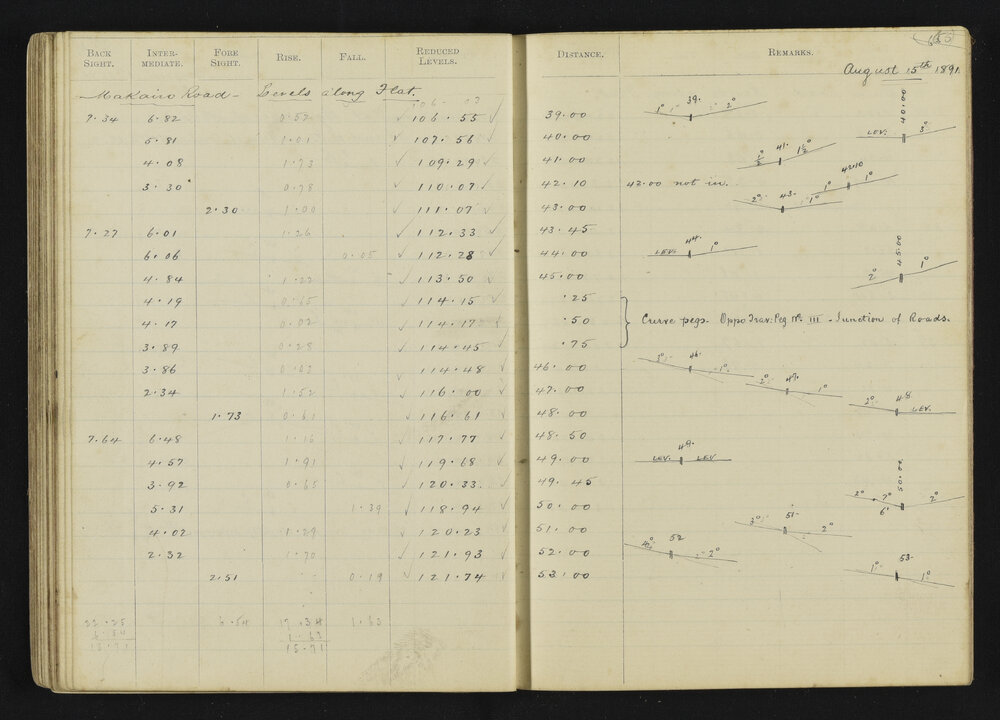 BACK SIGHT. INTER-MEDIATE. FORE SIGHT. RISE. FALL. REDUCED LEVELS. DISTANCE. REMARKS.
August 15th 1891.
Makairo Road - Levels along Flat.
7.34 6.82 0.52 106.55 39.00
5.81 1.01 107.56 40.00
4.08 1.73 109.29 41.00
3.30 0.78 110.07 42.10 42.00 not in.
2.30 1.00 111.07 43.00
7.27 6.01 1.26 112.33 43.45
6.06 0.05 112.28 44.00
4.84 1.22 113.50 45.00
4.19 0.65 114.15 .25
4.17 0.02 114.17 .50 Curve pegs. Oppo Trav: Peg No. III - Junction of Roads.
3.89 0.28 114.45 .75
3.86 0.03 114.48 46.00
2.34 1.52 116.00 47.00
1.73 0.61 116.61 48.00
7.64 6.48 1.16 117.77 48.50
4.57 1.91 119.68 49.00
3.92 0.65 120.33 49.45
5.31 1.39 118.94 50.00
4.02 1.29 120.23 51.00
2.32 1.70 121.93 52.00
2.51 0.19 121.74 53.00
22.25 6.54 17.34 1.63
6.54 1.63
15.71 15.71
1° 39. 2°
40.00 LEV. 3°
½° 41. 1½°
1° 42.10 1°
2° 43. 1°
LEV. 44. 1°
2° 45.00 1°
46. 1°
2° 47. 1°
2° 48 LEV.
LEV. 49. LEV
2° 7° 6° 50.00 2°
3° 51 2°
52 2°
1° 53 1°